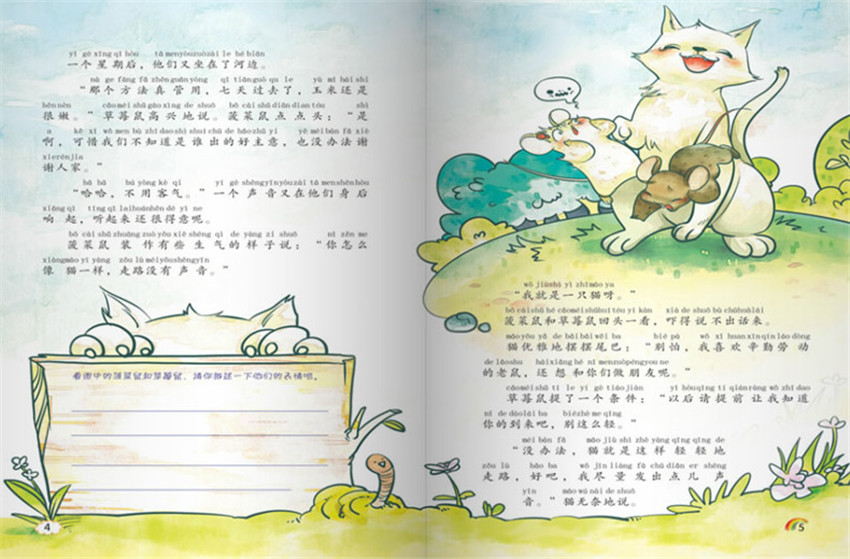 yí gè xīng qī hòu tā men yòu zuò zài le hé biān
一个星期后，他们又坐在了河边。
nà ge fāng fǎ zhēn guǎn yòng qī tiān guò qu le yù mǐ hái shi
“那个方法真管用，七天过去了，玉米还是
hěn nèn cǎo méi shǔ gāo xìng de shuō bō cài shǔ diǎn dian tóu shì
很嫩。”草莓鼠高兴地说。菠菜鼠点点头：“是
a kě xī wǒ men bù zhī dao shì shuí chū de hǎo zhǔ yi yě méi bàn fǎ xiè
啊，可惜我们不知道是谁出的好主意，也没办法谢
xie rén jia
谢人家。”
hā hā bú yòng kè qi yí gè shēng yīn yòu zài tā men shēn hòu
“哈哈，不用客气。”一个声音又在他们身后
xiǎng qǐ tīng qǐ lai huán hěn dé yì ne
响起，听起来还很得意呢。
bō cài shǔ zhuāng zuò yǒu xiē shēng qì de yàng zi shuō nǐ zěn me
菠菜鼠装作有些生气的样子说：“你怎么
xiàng māo yí yàng zǒu lù méi yǒu shēng yīn
像猫一样，走路没有声音。”
看图中的菠菜鼠和草莓鼠，请你描述一下他们的表情吧。
4
wǒ jiù shì yì zhī māo ya
“我就是一只猫呀。”
bō cài shǔ hé cǎo méi shǔ huí tóu yí kàn xià de shuō bù chū huà lái
菠菜鼠和草莓鼠回头一看，吓得说不出话来。
māo yōu yǎ de bǎi bǎi wěi ba bié pà wǒ xǐ huan xīn qín láo dòng
猫优雅地摆摆尾巴：“别怕，我喜欢辛勤劳动
de lǎo shǔ hái xiǎng hé nǐ men zuò péng you ne
的老鼠，还想和你们做朋友呢。”
cǎo méi shǔ tí le yí gè tiáo jiàn yǐ hòu qǐng tí qián ràng wǒ zhī dao
草莓鼠提了一个条件：“以后请提前让我知道
nǐ de dào lái ba bié zhè me qīng
你的到来吧，别这么轻。”
méi bàn fǎ māo jiù shì zhè yàng qīng qīng de
“没办法，猫就是这样轻轻地
zǒu lù hǎo ba wǒ jìn liàng fā chū diǎn er shēng
走路，好吧，我尽量发出点儿声
yīn māo wú nài de shuō
音。”猫无奈地说。
5